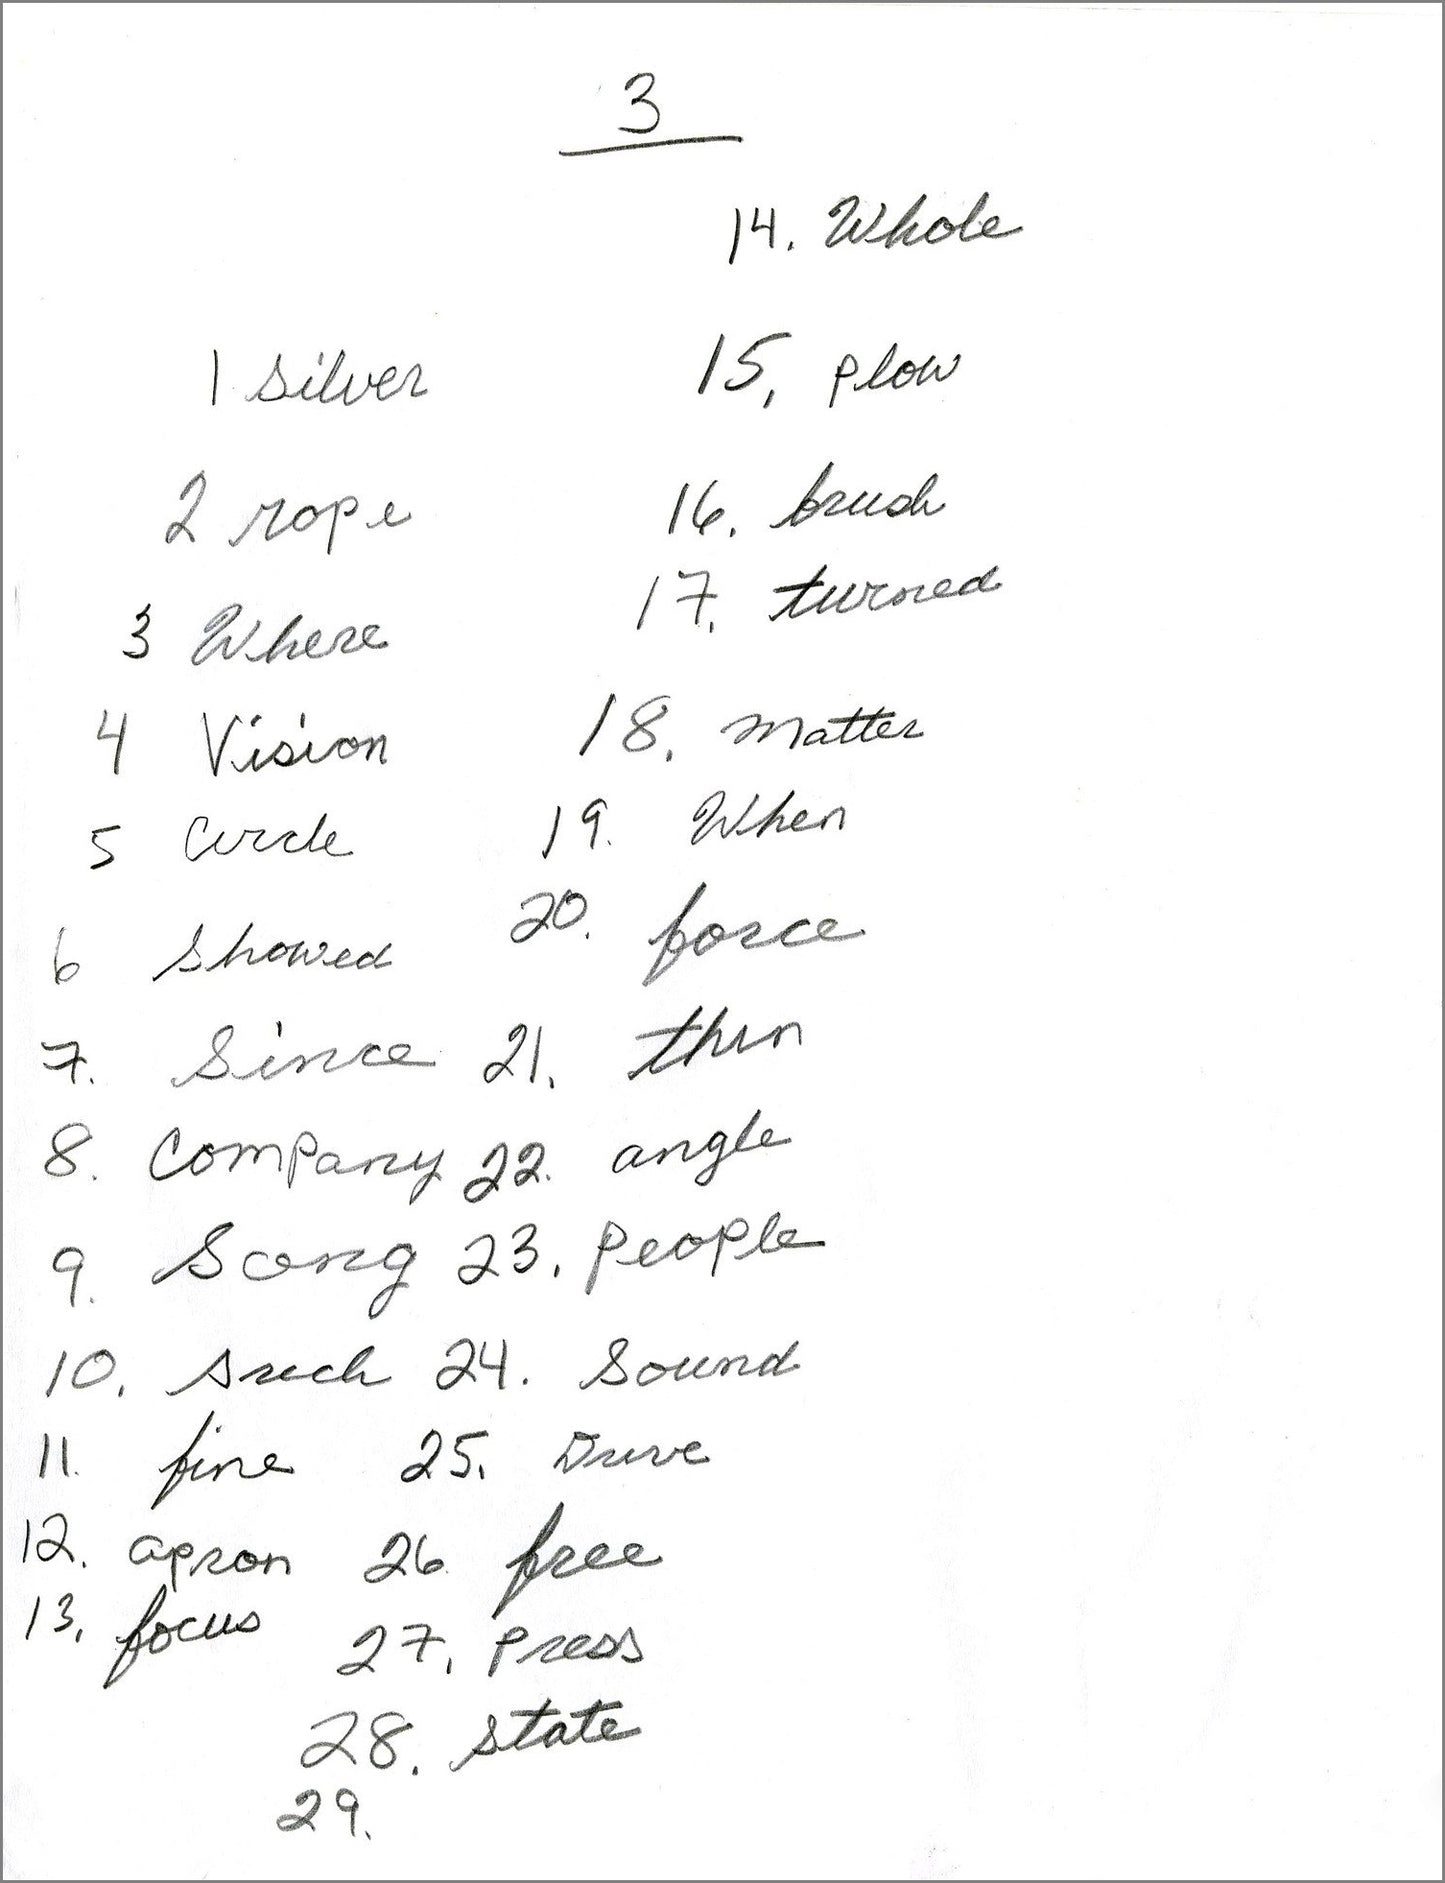 3
1 silver
2 rope
3 Where
4 Vision
5 Circle
6 Showed
7. Since
8. Company
9. Song
10. such
11. fine
12. apron
13. focus
14. Whole
15. plow
16. brush
17. turned
18. matter
19. When
20. force
21. thin
22. angle
23. People
24. Sound
25. Drive
26 free
27. Press
28. state
29.